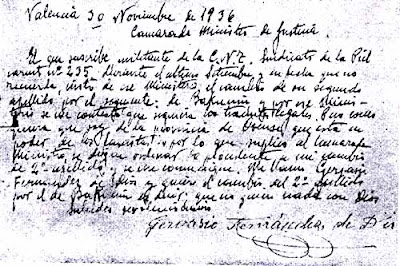 Valencia 30 Noviembre de 1936
Camarada Ministro de Justicia
El que suscribe militante de la C.N.T. Sindicato de la Piel
carnet nº 235. Durante el ultimo Setiembre, en fecha que no
recuerda, visto de ese Ministro, el cambio de su segundo
apellido por el siguente: de Bakunin y por ese Minis-
terio se me contesto que siguiera los tramites legales. Que como
quiera que soy de la provincia de Orense que esta en
poder de los fascistas, por lo que suplico al camarada
Ministro, se digne ordenar lo pendente a mi cambio
de 2º apellido y se me comunique. Me llamo Gervasio
Fernandez de Dios y quiero el cambio del 2º apellido
por el de Bakunin es decir, que no quiero nada con Dios
Gervasio Fernández de Dios